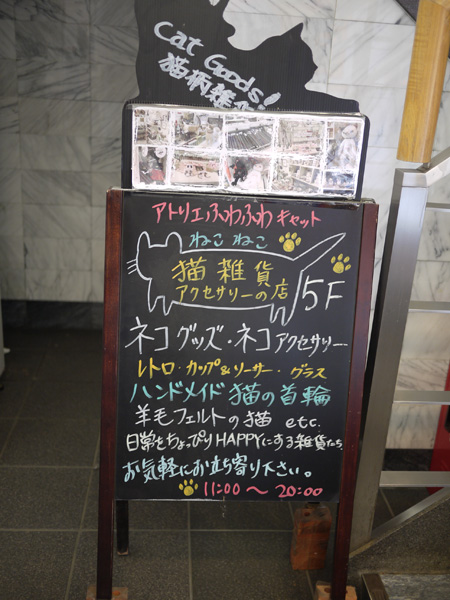 Cat Goods!
猫柄雑
アトリエふわふわキャット
ねこ ねこ
猫雑貨
アクセサリーの店
5F
ネコグッズ・ネコアクセサリー
レトロ・カップ&ソーサー・グラス
ハンドメイド猫の首輪
羊毛フェルトの猫 etc.
日常をちょっぴりHAPPYにする雑貨たち
お気軽にお立ち寄り下さい。
11:00〜20:00